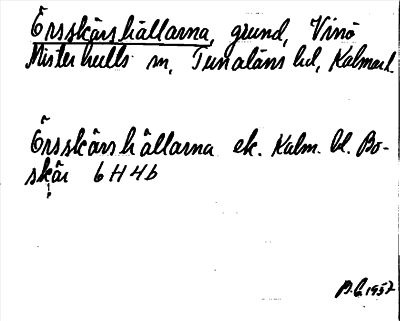 Örsskärshällarna, grund, Vinö
Misterhults sn, Tunaläns hd, Kalmar l.
Örsskärshällarna ek. Kalm. bl. Bo-
skär 6H4b
1957